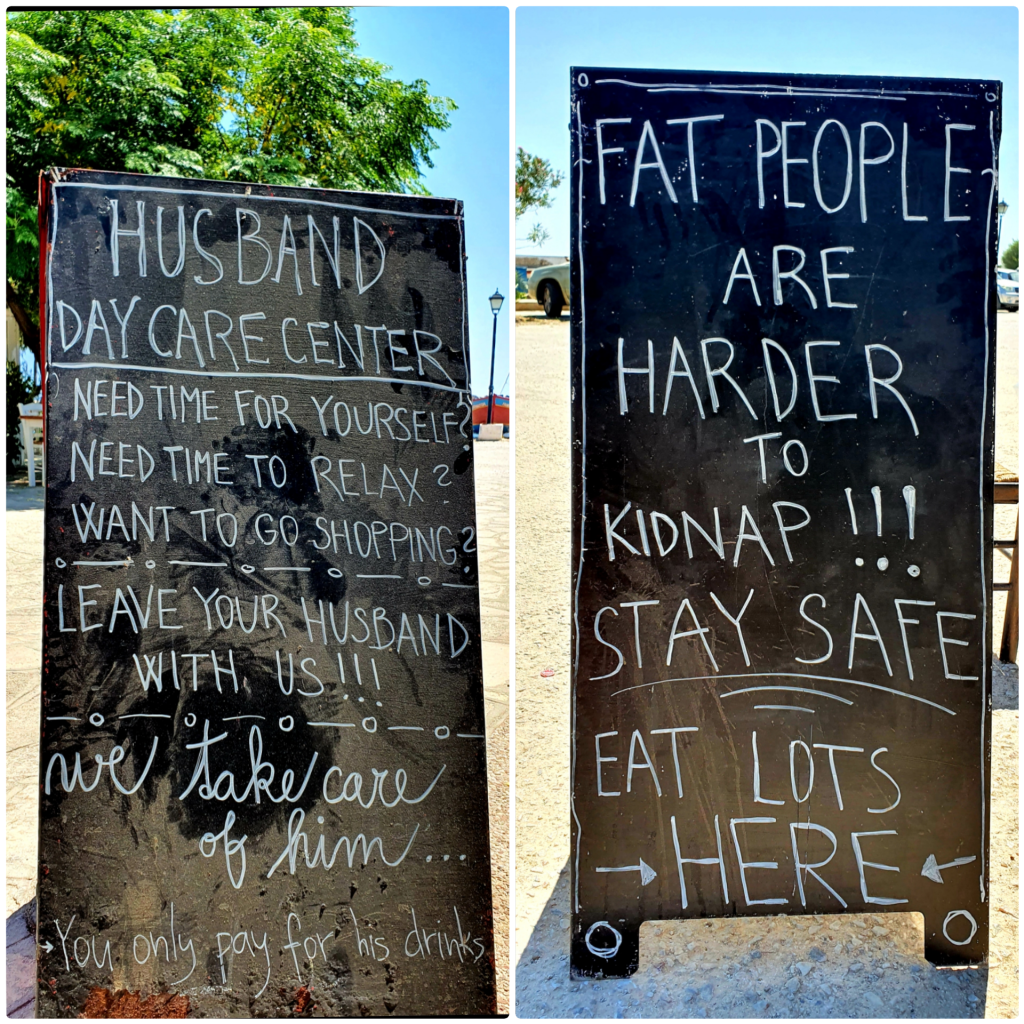 HUSBAND
DAY CARE CENTER
NEED TIME FOR YOURSELF?
NEED TIME TO RELAX?
WANT TO GO SHOPPING?
LEAVE YOUR HUSBAND
WITH US!!!
we take care
of him...
You only pay for his drinks
FAT PEOPLE
ARE
HARDER
TO
KIDNAP!!!
STAY SAFE
EAT LOTS
HERE